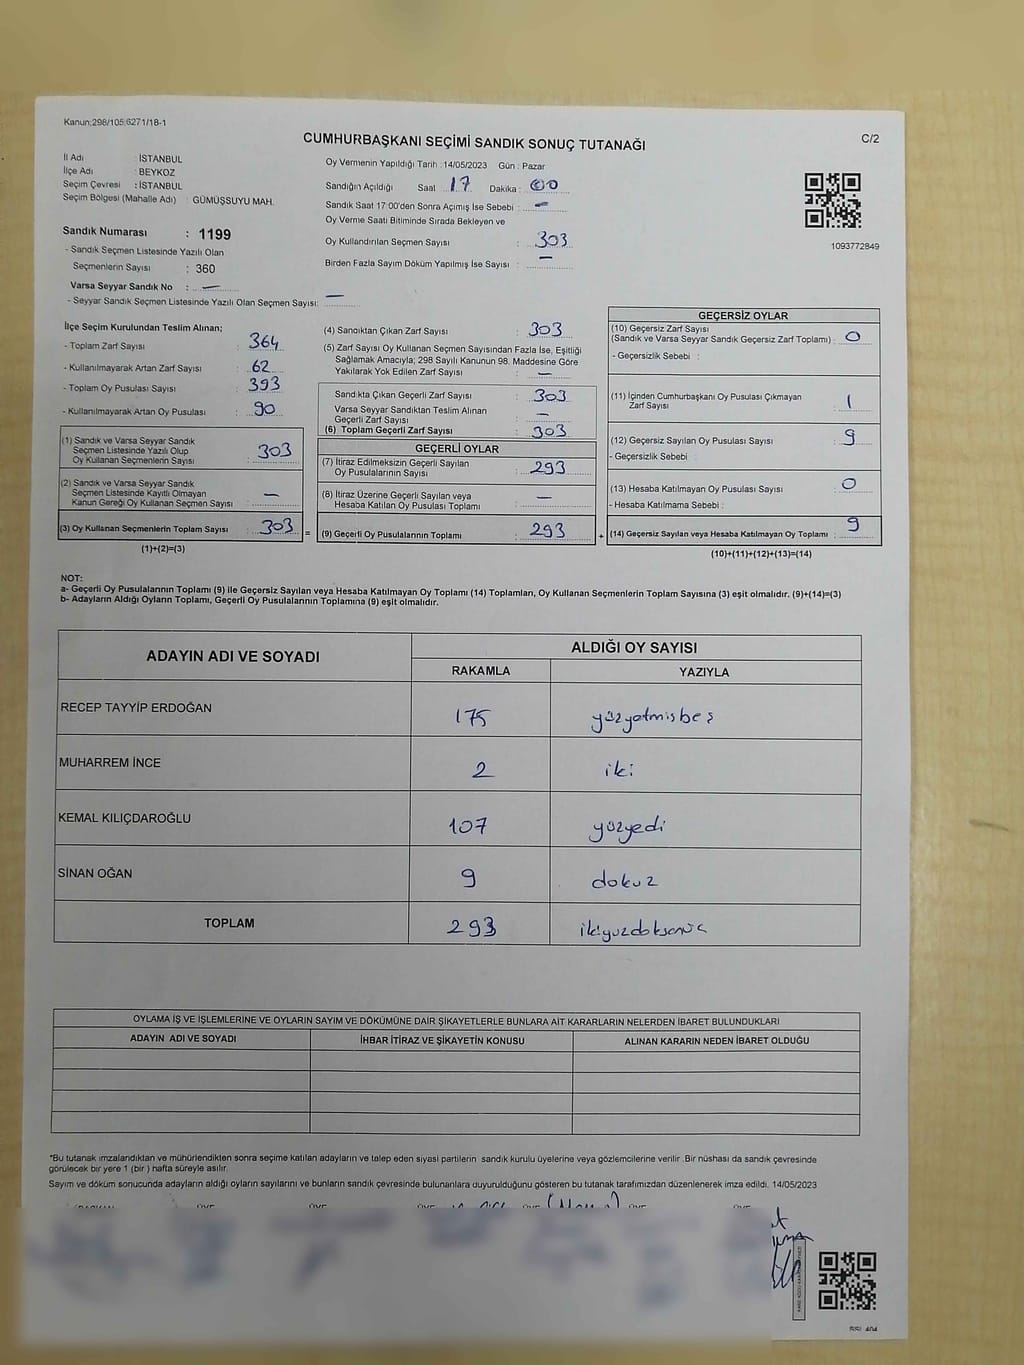 Kanun:298/105,6271/18-1
C/2
CUMHURBAŞKANI SEÇİMİ SANDIK SONUÇ TUTANAĞI
İl Adı : İSTANBUL
İlçe Adı : BEYKOZ
Seçim Çevresi : İSTANBUL
Seçim Bölgesi (Mahalle Adı) : GÜMÜŞSUYU MAH.
Sandık Numarası : 1199
- Sandık Seçmen Listesinde Yazılı Olan
Seçmenlerin Sayısı : 360
Varsa Seyyar Sandık No : —
- Seyyar Sandık Seçmen Listesinde Yazılı Olan Seçmen Sayısı: —
Oy Vermenin Yapıldığı Tarih :14/05/2023 Gün : Pazar
Sandığın Açıldığı Saat 17 Dakika : 00
Sandık Saat 17:00'den Sonra Açımış İse Sebebi : —
Oy Verme Saati Bitiminde Sırada Bekleyen ve
Oy Kullandırılan Seçmen Sayısı : 303
Birden Fazla Sayım Döküm Yapılmış İse Sayısı : —
1093772849
İlçe Seçim Kurulundan Teslim Alınan;
- Toplam Zarf Sayısı : 364
- Kullanılmayarak Artan Zarf Sayısı : 62
- Toplam Oy Pusulası Sayısı : 393
- Kullanılmayarak Artan Oy Pusulası : 90
(1) Sandık ve Varsa Seyyar Sandık
Seçmen Listesinde Yazılı Olup
Oy Kullanan Seçmenlerin Sayısı : 303
(2) Sandık ve Varsa Seyyar Sandık
Seçmen Listesinde Kayıtlı Olmayan
Kanun Gereği Oy Kullanan Seçmen Sayısı : —
(3) Oy Kullanan Seçmenlerin Toplam Sayısı : 303 =
(1)+(2)=(3)
(4) Sandıktan Çıkan Zarf Sayısı : 303
(5) Zarf Sayısı Oy Kullanan Seçmen Sayısından Fazla İse, Eşitliği
Sağlamak Amacıyla; 298 Sayılı Kanunun 98. Maddesine Göre
Yakılarak Yok Edilen Zarf Sayısı : —
Sandıkta Çıkan Geçerli Zarf Sayısı : 303
Varsa Seyyar Sandıktan Teslim Alınan
Geçerli Zarf Sayısı : —
(6) Toplam Geçerli Zarf Sayısı : 303
GEÇERLİ OYLAR
(7) İtiraz Edilmeksizin Geçerli Sayılan
Oy Pusulalarının Sayısı : 293
(8) İtiraz Üzerine Geçerli Sayılan veya
Hesaba Katılan Oy Pusulası Toplamı : —
(9) Geçerli Oy Pusulalarının Toplamı : 293 +
GEÇERSİZ OYLAR
(10) Geçersiz Zarf Sayısı
(Sandık ve Varsa Seyyar Sandık Geçersiz Zarf Toplamı) : 0
- Geçersizlik Sebebi :
(11) İçinden Cumhurbaşkanı Oy Pusulası Çıkmayan
Zarf Sayısı : 1
(12) Geçersiz Sayılan Oy Pusulası Sayısı : 9
- Geçersizlik Sebebi :
(13) Hesaba Katılmayan Oy Pusulası Sayısı : 0
- Hesaba Katılmama Sebebi :
(14) Geçersiz Sayılan veya Hesaba Katılmayan Oy Toplamı : 9
(10)+(11)+(12)+(13)=(14)
NOT:
a- Geçerli Oy Pusulalarının Toplamı (9) ile Geçersiz Sayılan veya Hesaba Katılmayan Oy Toplamı (14) Toplamları, Oy Kullanan Seçmenlerin Toplam Sayısına (3) eşit olmalıdır. (9)+(14)=(3)
b- Adayların Aldığı Oyların Toplamı, Geçerli Oy Pusulalarının Toplamına (9) eşit olmalıdır.
ADAYIN ADI VE SOYADI
ALDIĞI OY SAYISI
RAKAMLA YAZIYLA
RECEP TAYYİP ERDOĞAN 175 yüzyetmişbeş
MUHARREM İNCE 2 iki
KEMAL KILIÇDAROĞLU 107 yüzyedi
SİNAN OĞAN 9 dokuz
TOPLAM 293 ikiyüzdoksanüç
OYLAMA İŞ VE İŞLEMLERİNE VE OYLARIN SAYIM VE DÖKÜMÜNE DAİR ŞİKAYETLERLE BUNLARA AİT KARARLARIN NELERDEN İBARET BULUNDUKLARI
ADAYIN ADI VE SOYADI İHBAR İTİRAZ VE ŞİKAYETİN KONUSU ALINAN KARARIN NEDEN İBARET OLDUĞU
*Bu tutanak imzalandıktan ve mühürlendikten sonra seçime katılan adayların ve talep eden siyasi partilerin sandık kurulu üyelerine veya gözlemcilerine verilir .Bir nüshası da sandık çevresinde
görülecek bir yere 1 (bir ) hafta süreyle asılır.
Sayım ve döküm sonucunda adayların aldığı oyların sayılarını ve bunların sandık çevresinde bulunanlara duyurulduğunu gösteren bu tutanak tarafımızdan düzenlenerek imza edildi. 14/05/2023